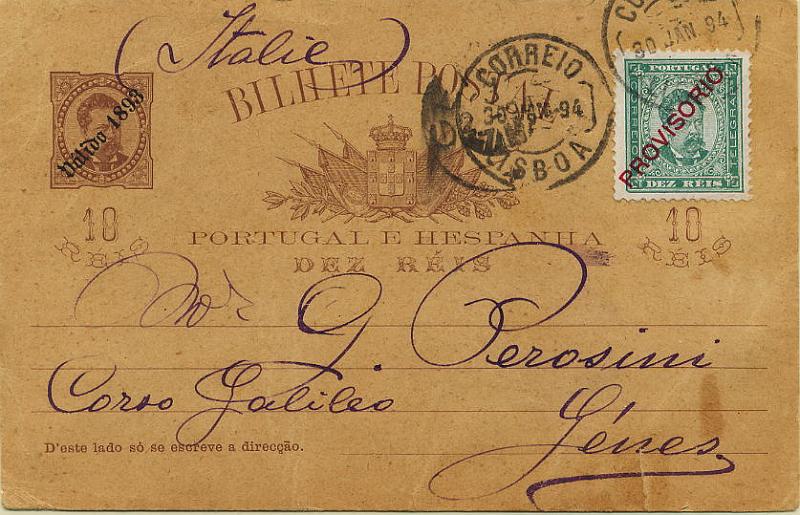 Italie
BILHETE POSTAL
CORREIO
30 JAN. 94
LISBOA
30 JAN. 94
Valido 1893
PORTUGAL
CORREIOS
TELEGRAPHOS
PROVISORIO
DEZ REIS
10
REIS
PORTUGAL E HESPANHA
DEZ RÉIS
10
REIS
Mor G. Perosini
Corso Galileo
Gênes
D'este lado só se escreve a direcção.